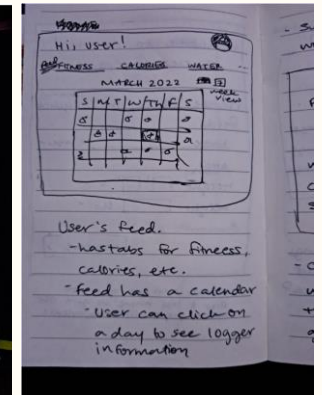 Hi, user!
FITNESS CALORIES WATER ...
MARCH 2022
week
view
S M T W Th F S
User's feed.
- has tabs for fitness,
calories, etc.
- feed has a calendar
- user can click on
a day to see logged
information